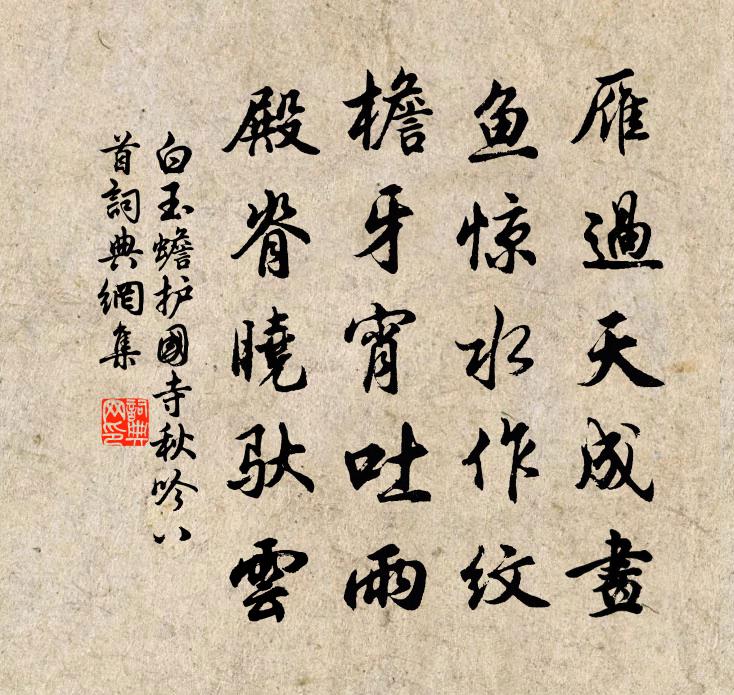 雁過天成畫
鱼惊水作纹
檐牙宵吐雨
殿脊曉馱雲
白玉蟾护國寺秋吟八
首詞典網集
詞典
网印